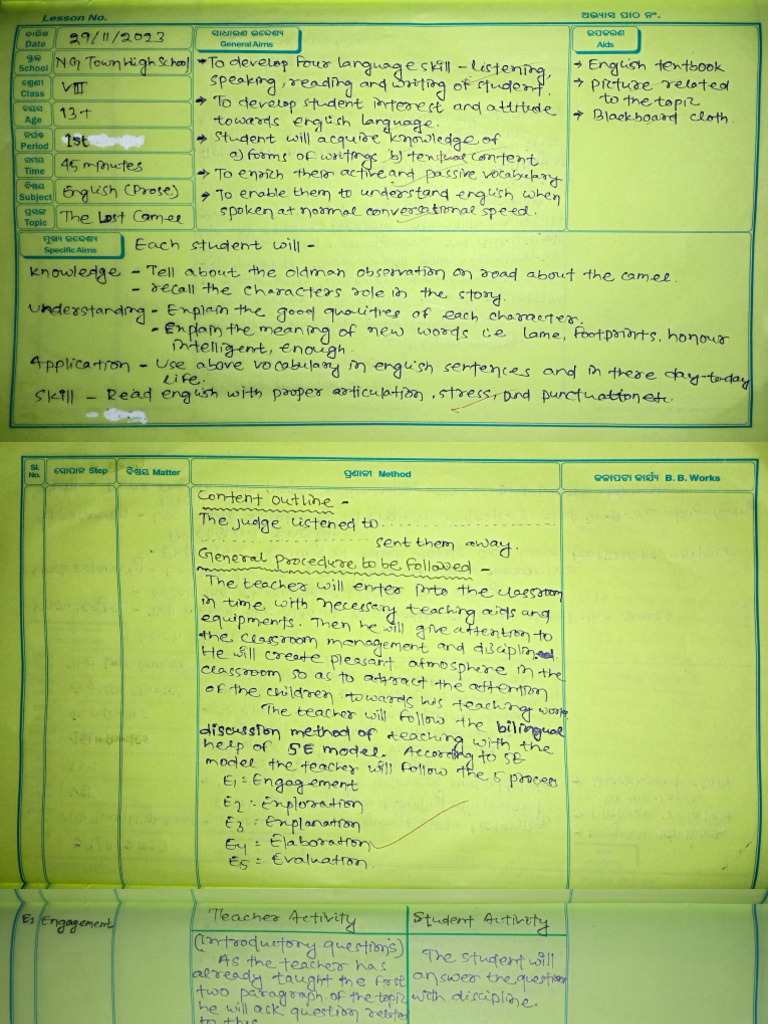 Lesson No.
ଅଭ୍ୟାସ ପାଠ ନଂ.
ତାରିଖ
Date
29/11/2023
ସ୍କୁଲ
School
NG Town High School
ଶ୍ରେଣୀ
Class
VIII
ବୟସ
Age
13+
Period
1st
ସମୟ
Time
45 minutes
ବିଷୟ
Subject
English (Prose)
ପ୍ରସଙ୍ଗ
Topic
The Lost Camel
ସାଧାରଣ ଉଦ୍ଦେଶ୍ୟ
General Aims
→ To develop four language skill - listening,
speaking, reading and writing of student.
→ To develop student interest and attitude
towards english language.
→ Student will acquire knowledge of
a) forms of writings b) textual content.
→ To enrich their active and passive vocabulary
→ To enable them to understand english when
spoken at normal conversational speed.
ଉପକରଣ
Aids
→ English textbook
→ Picture related
to the topic
→ Blackboard cloth.
ମୁଖ୍ୟ ଉଦ୍ଦେଶ୍ୟ
Specific Aims
Each student will -
Knowledge - Tell about the oldman observation on road about the camel.
- recall the characters role in the story.
Understanding - Explain the good qualities of each character.
- Explain the meaning of new words i.e lame, footprints, honour
intelligent, enough.
Application - Use above vocabulary in english sentences and in there day-to-day
life.
Skill - Read english with proper articulation, stress, and punctuation etc.
Sl. No.
ସୋପାନ Step
ବିଷୟ Matter
ପ୍ରଣାଳୀ Method
କଳାପଟା କାର୍ଯ୍ୟ B. B. Works
Content outline -
The judge listened to ....................
.................... sent them away.
General Procedure to be followed -
The teacher will enter into the classroom
in time with necessary teaching aids and
equipments. Then he will give attention to
the classroom management and discipline.
He will create pleasant atmosphere in the
classroom so as to attract the attention
of the children towards his teaching work.
The teacher will follow the bilingual
discussion method of teaching with the
help of 5E model. According to 5E
model the teacher will follow the 5 process
E1 = Engagement
E2 = Exploration
E3 = Explanation
E4 = Elaboration
E5 = Evaluation.
Engagement
Teacher Activity
Student Activity
(Introductory questions)
As the teacher has
already taught the first
two paragraph of the topic
he will ask question related
to this
The student will
answer the question
with discipline.